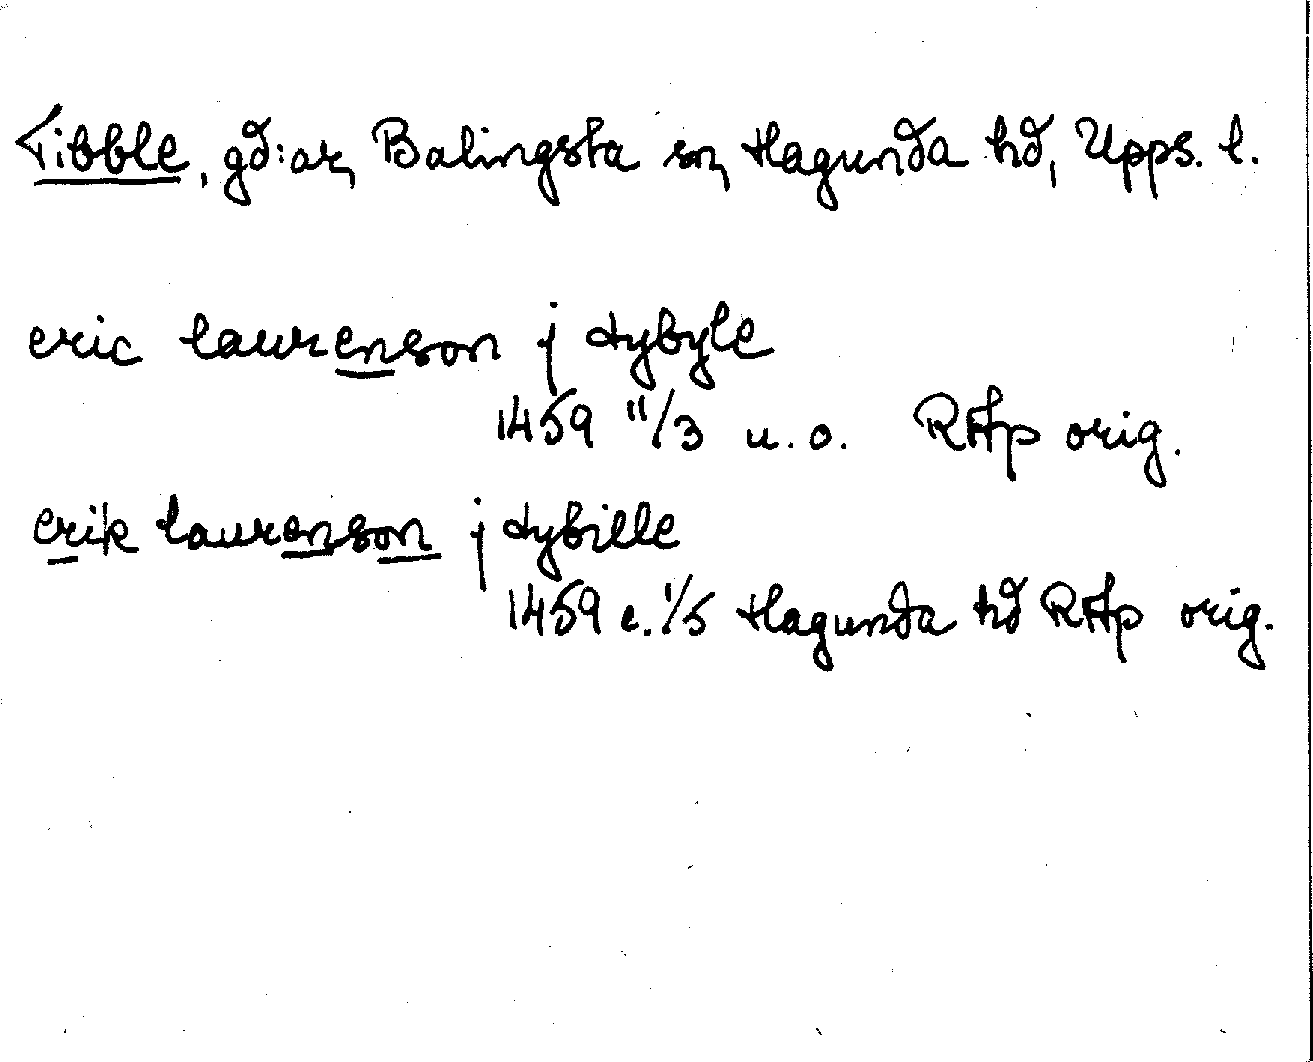 Tibble, gd:ar, Balingsta sn, Hagunda hd, Upps. l.
eric laurenson j tybyle
1459 11/3 u.o. RAp orig.
erik laurenson j tybille
1459 e. 1/5 Hagunda hd RAp orig.